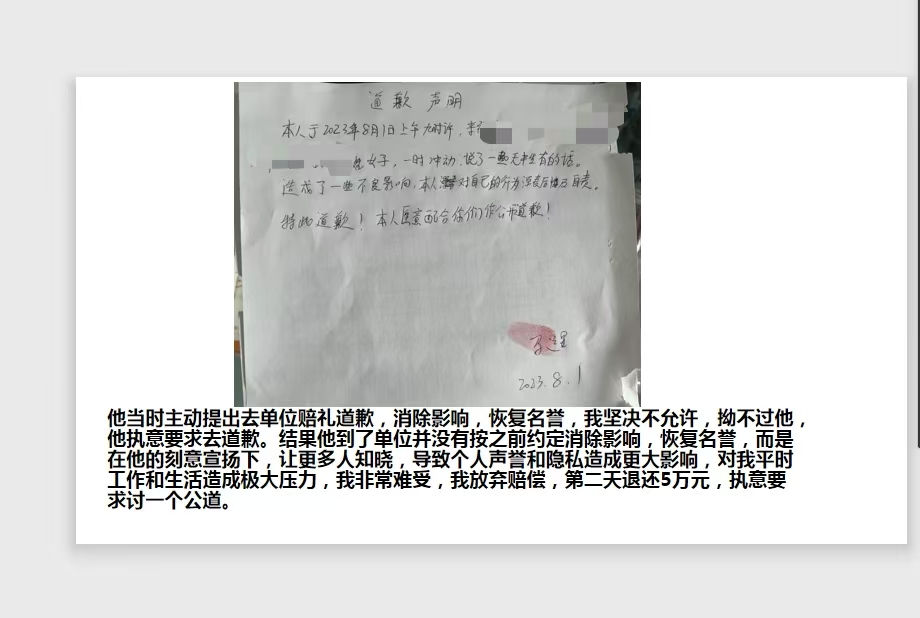 道歉声明
本人于2023年8月1日上午九时许，来
女子，一时冲动，说了一些无中生有的话。
造成了一些不良影响，本人对自己的行为深表后悔及自责。
特此道歉！本人愿意配合你们作公开道歉！
2023.8.1
他当时主动提出去单位赔礼道歉，消除影响，恢复名誉，我坚决不允许，拗不过他，
他执意要求去道歉。结果他到了单位并没有按之前约定消除影响，恢复名誉，而是
在他的刻意宣扬下，让更多人知晓，导致个人声誉和隐私造成更大影响，对我平时
工作和生活造成极大压力，我非常难受，我放弃赔偿，第二天退还5万元，执意要
求讨一个公道。